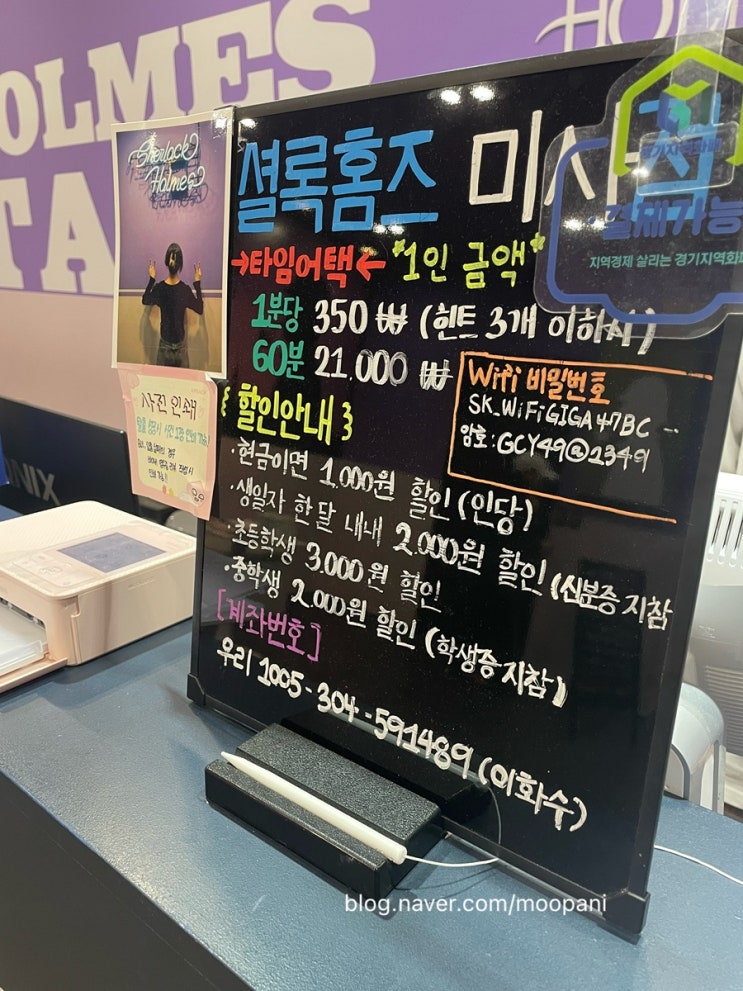 OLMES
TA
HOL
Sherlock
Holmes
셜록홈즈 미사
→타임어택← *1인 금액*
1분당 350₩ (힌트 3개 이하시)
60분 21,000₩
Wifi 비밀번호
SK_WiFiGIGA47BC
암호:GCY49@2349
{할인안내}
·현금이면 1,000원 할인 (인당)
·생일자 한달 내내 2,000원 할인 (신분증 지참
·초등학생 3,000원 할인
·중학생 2,000원 할인 (학생증 지참)
[계좌번호]
우리 1005-304-591489 (이화수)
경기지역화폐
결제가능
지역경제 살리는 경기지역화폐
사진 인쇄
NIX
blog.naver.com/moopani